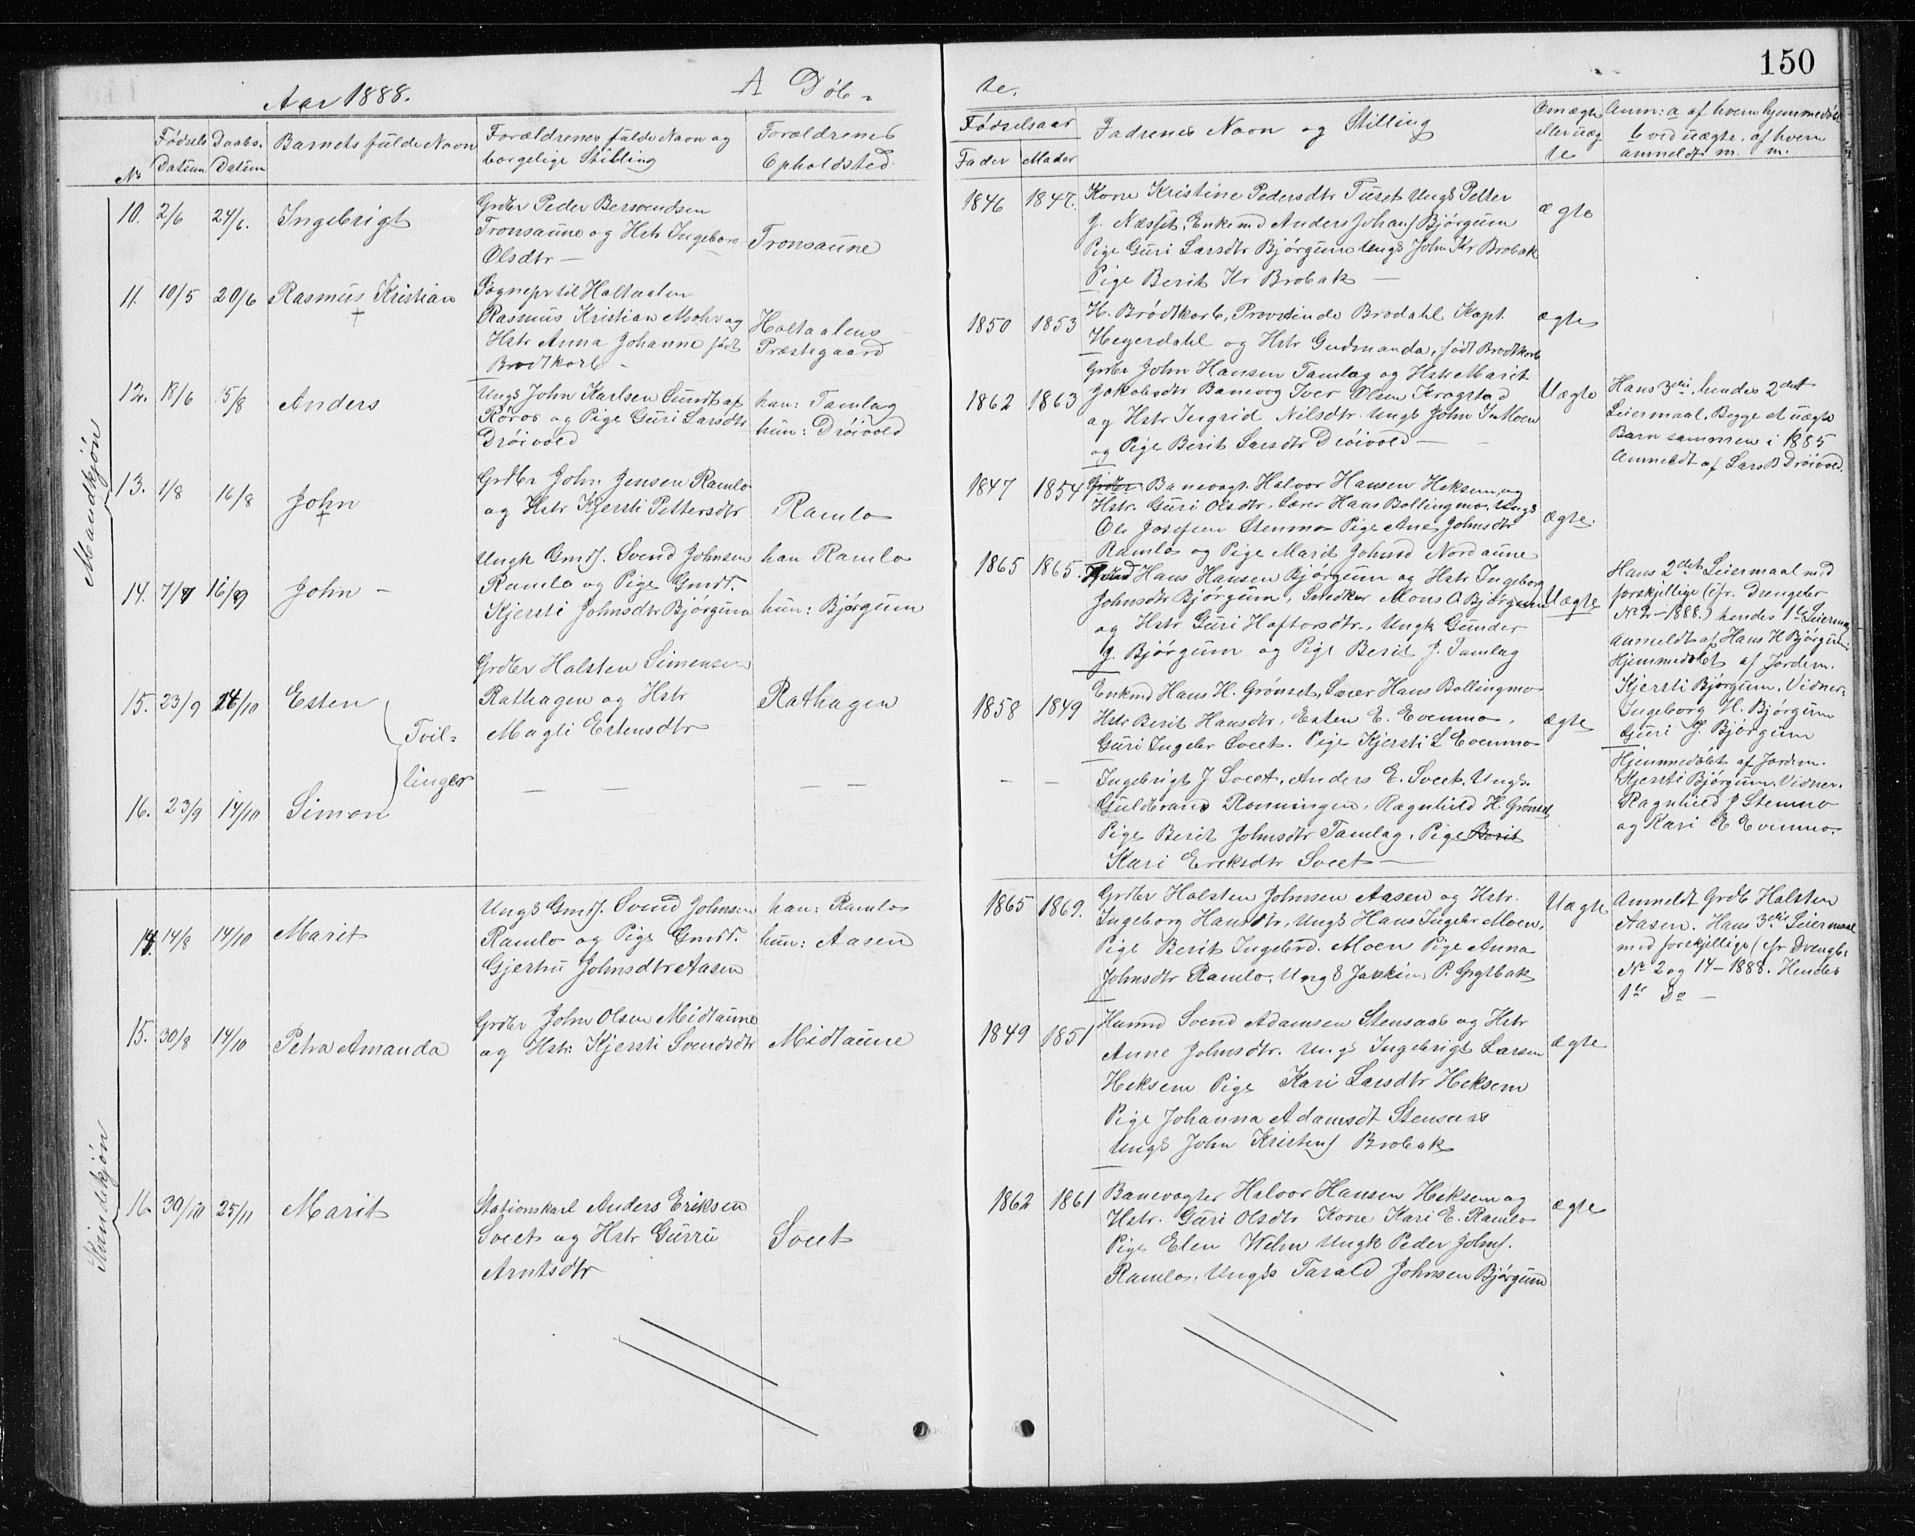 150
Aar 1888.
A Døb-
te.
No
Fødsels Datum
Daabs. Datum
Barnets fulde Navn
Forældrenes fulde Navn og
borgelige Stilling
Forældrenes
Opholdsted.
Fødselsaar
Fader Moder
Fadrenes Navn og Stilling
Omægte
eller uæg-
te
Anm: a af hvem hjemmedøbt
b ved uægte, af hvem
anmeldt m. m.
Mandkjøn
10. 2/6 24/6. Ingebrigt
Grdbr Peder Bersvendsen
Tronsaune og Hstr Ingeborg
Olsdtr —
Tronsaune
1846 1847.
Kone Kristine Pedersdtr Turet Ungk Petter
J. Næsset, Enkemd Anders Johans Bjørgum
Pige Guri Larsdtr Bjørgum Ungk John Kr Brobak
Pige Berit Kr Brobak —
ægte
11. 10/5 20/6 Rasmus Kristian
+
Sognepr til Holtaalen
Rasmus Kristian Mohr og
Hstr Anna Johanne født
Brodtkorb -
Holtaalens
Præstegaard
1850 1853
H. Brødtkorb, Provstinde Brodahl Kapt
Heyerdahl og Hstr Gudmanda, født Brodtkorb
ægte
12. 18/6 5/8 Anders
Ungk John Karlsen Sundt af
Röros og Pige Guri Larsdtr
Drøivold
han: Tamlag
hun: Drøivold
1862 1863
Grdbr John Hansen Tamlag og Hstr Marit
Jakobsdtr Banevog Iver Olsen Kragstad
og Hstr Ingrid Nilsdtr. Ungk John J Moen
og Pige Berit Larsdtr Drøivold —
Uægte
Hans 3die, hendes 2det
Leiermaal. Begge et uægte
Barn sammen i 1885
Anmeldt af Lars B Drøivold.
13. 1/8 16/8 John
+
Grdbr John Jensen Ramlo
og Hstr Kjersti Pettersdtr
Ramlo
1847 1854
Grdbr Banevogt. Halvor Hansen Heksem og
Hstr. Guri Olsdtr, Lærer Hans Bollingmo, Ungk
Ole Josefsen Stenmo Pige Ane Johnsdtr
Ramlo og Pige Marit Johnsd Nordaune
ægte.
14. 7/7 16/9 John -
Ungk Gmds. Svend Johnsen
Ramlo og Pige Gmdt.
Kjersti Johnsdtr Bjørgum
han Ramlo
hun: Bjørgum
1865 1865.
Hans Hansen Bjørgum og Hstr Ingeborg
Johnsdtr Bjørgum, Snedker Mons O Bjørgum
og Hstr Guri Haftorsdtr., Ungk Gunder
J. Bjørgum og Pige Berit J. Tamlag
Uægte
Hans 2det Leiermaal med
forskjellige (cfr. Drengebr
No 2 - 1888.) hendes 1te Leierm.
Anmeldt af Hans H Bjørgum
Hjemmedøbt af Jordem.
Kjersti Bjørgum, Vidner:
Ingeborg H. Bjørgum
Guri J. Bjørgum
15. 23/9 14/10 Esten
Tvil-
linger
Grdbr Halsten Simensen
Rathagen og Hstr
Magli Estensdtr
Rathagen
1858 1849
Enkmd Hans H. Grønset, Lærer Hans Bollingmo
Hstr Berit Hansdtr, Esten E. Evenmo,
Guri Ingebr Svect. Pige Kjersti L Evenmo
ægte
Hjemmedøbt af Jordem.
Kjersti Bjørgum. Vidner.
Ragnhild J Stenmo
og Kari E Evenmo
16. 23/9 14/10 Simon
— — — —
Ingebrigt J Svect, Anders E. Svect. Ungk.
Guldbrand Rønningen, Ragnhild H. Grønset,
Pige Berit Johnsdtr Tamlag, Pige Berit
Kari Eriksdtr Svect —
Kvindekjøn
14. 14/8 14/10 Marit
Ungk Gmds. Svend Johnsen
Ramlo og Pige Gmdt.
Gjertru Johnsdtr Aasen
han: Ramlo
hun: Aasen
1865 1869.
Grdbr Halsten Johnsen Aasen og Hstr.
Ingeborg Hansdtr, Ungk Hans Ingebr Moen,
Pige Berit Ingebrd. Moen Pige Anna
Johnsdtr Ramlo. Ungk Joakim P. Grytbak
Uægte
Anmeldt Grdb Halsten
Aasen. Hans 3die Leiermaal
med forskjellige (cfr Drengb.
No 2 og 14 - 1888. Hendes
1te Do —
15. 30/8 14/10 Petra Amanda
Grdbr John Olsen Midtaune
og Hstr. Kjersti Svendsdtr
Midtaune
1849 1851
Husmd Svend Adamsen Stensaas og Hstr
Anne Johnsdtr. Ungk Ingebrigt Larsen
Heksem Pige Kari Larsdtr Heksem
Pige Johanna Adamsdt Stensaas
Ungk John Kristens Brobak
ægte
16. 30/10 25/11 Marit
Stationskarl Anders Eriksen
Svect og Hstr Gurru
Arntsdtr
Svect
1862 1861
Banevogter Halvor Hansen Heksem og
Hstr. Guri Olsdtr Kone Kari E. Ramlo
Pige Elen Wehn Ungk Peder Johns.
Ramlo, Ungk Tarald Johnsen Bjørgum
ægte